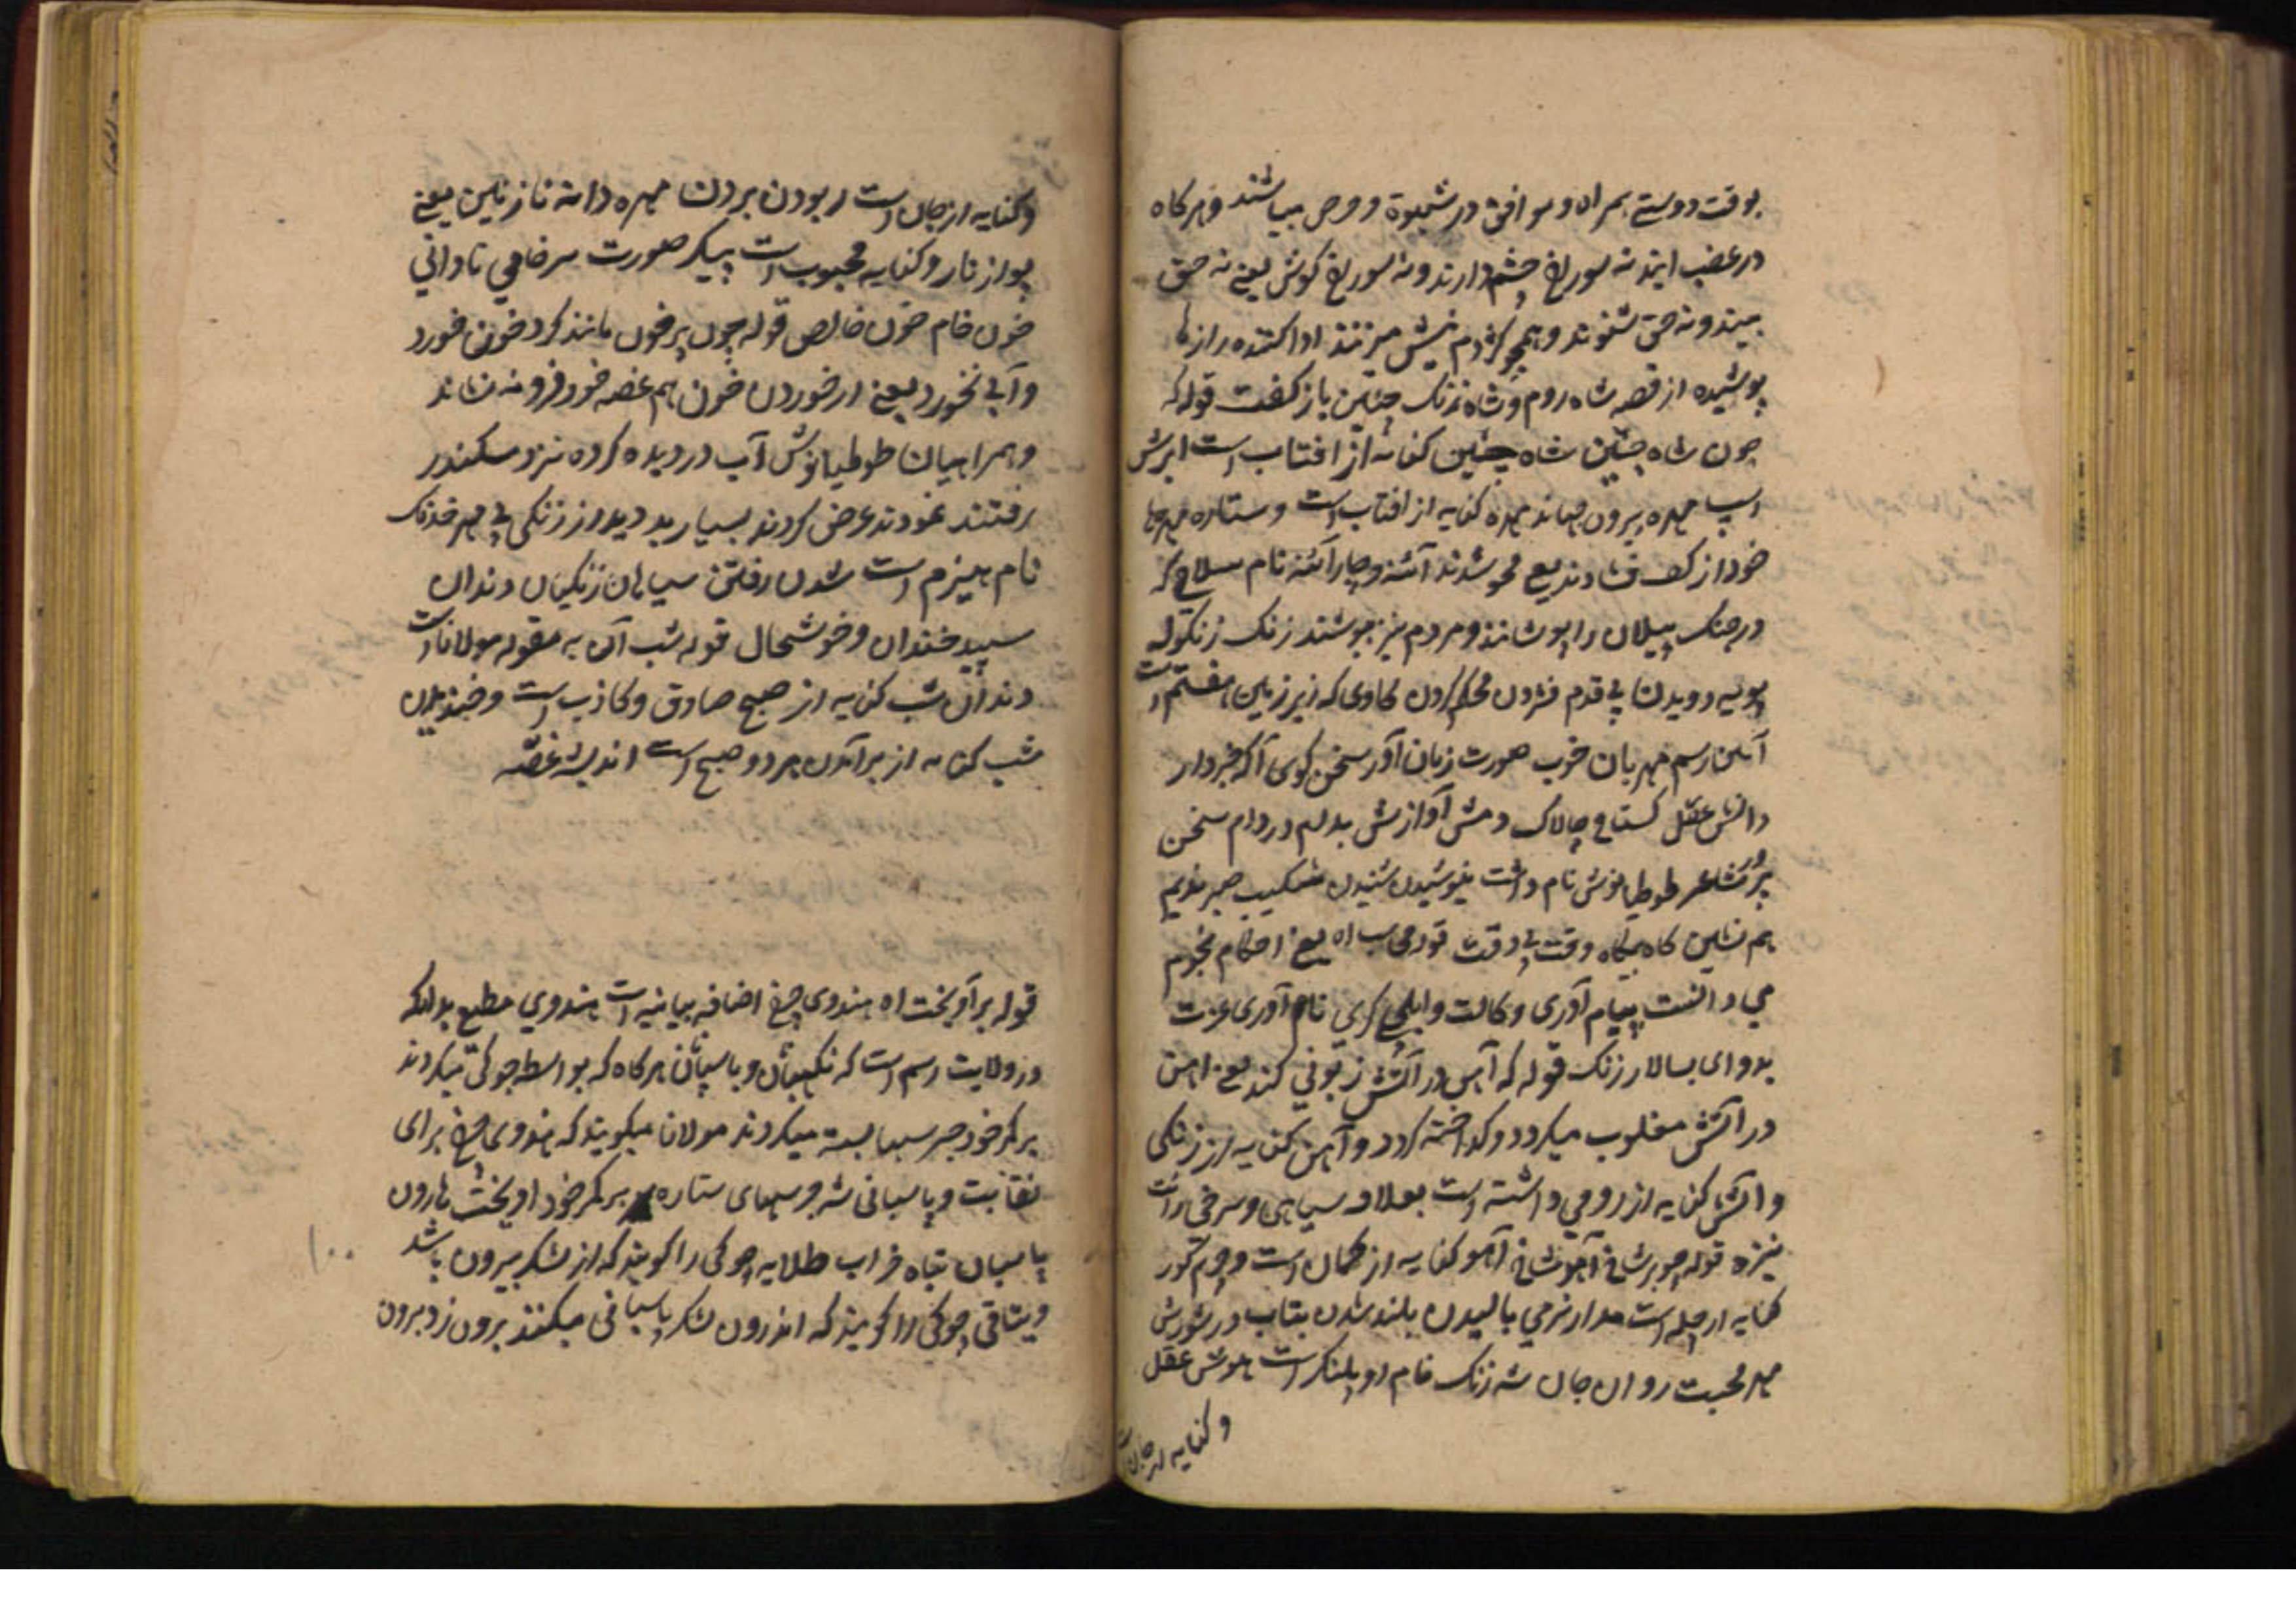 بوقت دوستے ہمراه و موافق در شیوه و وص میباشند و ہرکاه
در غضب ایند نه سوراخ چشم دارند و نه سوراخ کوش یعنے نه حق
بینند و نه حق شنوند و ہمچو کژدم نیش میزنند ادا کننده رازها
پوشیده از قصه شاه روم و شاه زنک چنین باز کفت قوله که
چون شاه چین شاه چین کنایه از افتاب است ابرش
اسپ مهره بیرون جهاند مهره کنایه از افتاب است و ستاره مهرها
خود از کف فشاندند یعنے محو شدند آئنه و چار آئنه نام سلاح که
در جنک پیلان را پوشانند و مردم نیز پوشند زنک زنکوله
پویه دویدن پی قدم فشردن محکم کردن کاوی که زیر زمین هفتم است
آئین رسم مهربان خوب صورت زبان آور سخن کوی آکه خبردار
دانش عقل کستاخ چالاک دمش آوازش بدلم در دام سخن
پرور شاعر طوطیانوش نام داشت نیوشیدن شنیدن شکیب صبر ندیم
ہم نشین کاه بیکاه وقت بی وقت قوله محاسب اه یعنے احکام نجوم
می دانست پیام آوری وکالت و ایلچی کری نام آوری عزت
بدو ای بسالار زنک قوله که آہن در آتش زبونی کند یعنے اہن
در آتش مغلوب میکردد و کداخته کردد و آہن کنایه از زنکی
و اتش کنایه از رومی داشته است بعلاقه سیاہی و سرخی راست
نیزه قوله چو بر شاخ آہو شاخ آہو کنایه از کمان است و چرم کور
کنایه از چله است مدارا نرمی بالیدن بلند شدن بتاب در شورش
مہر محبت روان جان شه زنک نام او پلنکر است ہوش عقل
و کنایه از جان است
وکنایه از جان است ربودن بردن مهره دانه نازنین یعنے
پر از ناز و کنایه محبوب است پیکر صورت سر خامی نادانی
خون خام خون خالص قوله چون پر خون مانند کرد خونش خورد
و آبی نخورد یعنے از خوردن خون ہم غصه خود فرو نه نشاند
و ہمراہیان طوطیانوش آب در دیده کرده نزد سکندر
رفتند نمودند عرض کردند بسیار بد دیدار زنکی بی مهر خدنک
نام ہیزم است شدن رفتن سیاهان زنکیان دندان
سپید خندان و خوشحال قوله شب آن به مقوله مولانا است
دندان شب کنایه از صبح صادق و کاذب است و خندیدن
شب کنایه از برآمدن ہر دو صبح است اندیشه غصّه
قوله برآویخت اه هندوی چرخ اضافه بیانیه است هندوی مطیع بدانکه
در ولایت رسم است که نکهبان و پاسبان ہر کاه که بواسطه چوکی میکردند
بر کمر خود جرسها بسته میکردند مولانا میکویند که هندوی چرخ برای
نقابت و پاسبانی شه جرسهای ستاره بر کمر خود اویخت هارون
پاسبان تباه خراب طلایه چوکی را کویند که از لشکر بیرون باشد
ویتاقی چوکی را کویند که اندرون لشکر پاسبانی میکنند برون زد بیرون
۱۰۰